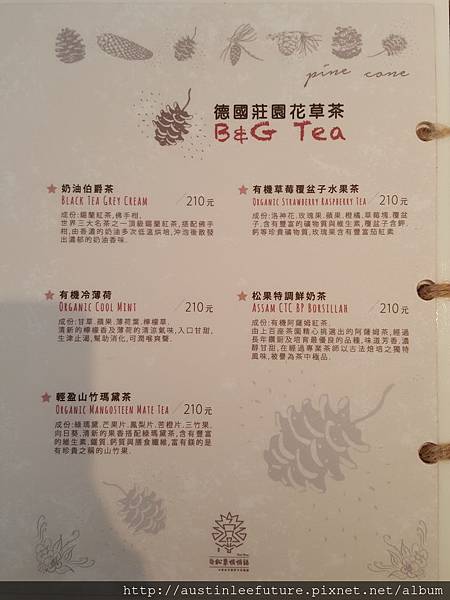 pine cone
德國莊園花草茶
B&G Tea
奶油伯爵茶
Black Tea Grey Cream 210元
成份:錫蘭紅茶,佛手柑,
世界三大名茶之一頂級錫蘭紅茶,搭配佛手
柑,由香濃的奶油多次低溫烘培,沖泡後散發
出濃郁的奶油香味.
有機草莓覆盆子水果茶
Organic Strawberry Raspberry Tea 210元
成份:洛神花,玫瑰果.蘋果,橙橘,草莓塊,覆盆
子,含有豐富的礦物質與維生素,覆盆子含鉀.
鈣等珍貴礦物質,玫瑰果含有豐富茄紅素
有機冷薄荷
Organic Cool Mint 210元
成份:甘草.蘋果,薄荷葉,檸檬草,
清新的檸檬香及薄荷的清涼氣味,入口甘甜,
生津止渴,幫助消化,可潤喉爽聲.
松果特調鮮奶茶
Assam CTC BP Borsillah 210元
成份:有機阿薩姆紅茶.
由上百座茶園精心挑選出的阿薩姆茶,經過
長年鑽研及培育最優良的品種,味道芳香,濃
醇甘甜,在經過專業茶師以古法焙培之獨特
風味,被譽為茶中極品.
輕盈山竹瑪黛茶
Organic Mangosteen Mate Tea 210元
成份:綠瑪黛.芒果片.鳳梨片.苦橙片.三竹果.
向日葵,清新的果香搭配綠瑪黛茶,含有豐富
的維生素.鐵質.鈣質與膳食纖維,富有鎂的是
有珍貴之稱的山竹果.
http://austinleefuture.pixnet.net/album